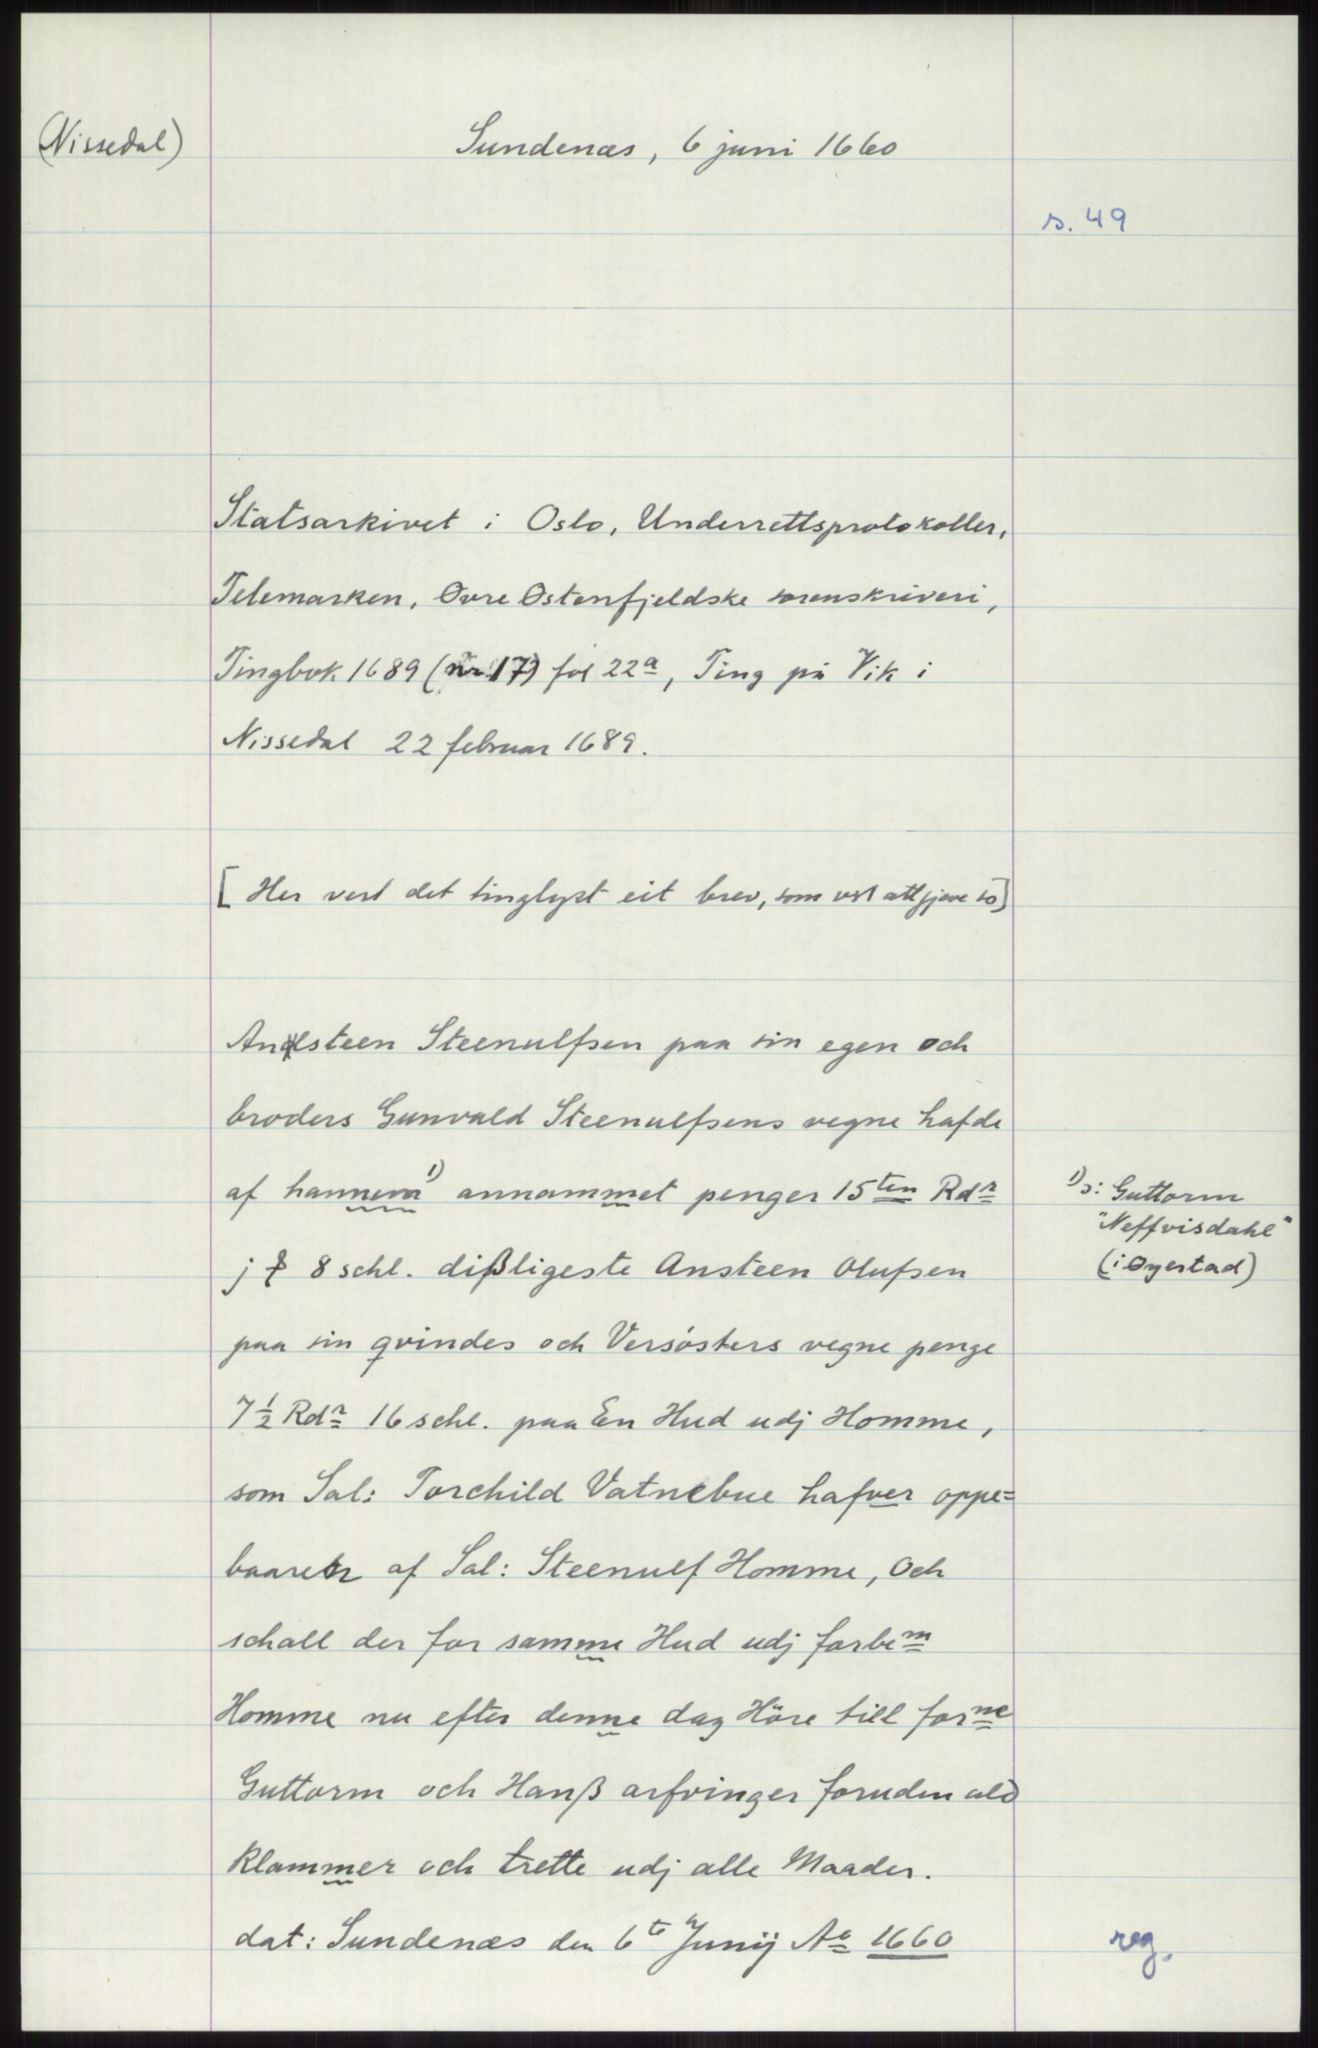 (Nissedal)
Sundenæs, 6 juni 1660
s. 49
Statsarkivet i Oslo, Underrettsprotokoller,
Telemarken, Øvre Østenfjeldske sorenskriveri,
Tingbok 1689 (nr 17) fol 22a, Ting på Vik i
Nissedal 22 februar 1689.
[Her vert det tinglyst eit brev, som vert attgjeve so]
Ansteen Steenulfsen paa sin egen och
broders Gunvald Steenulfsens vegne hafde
af hannem 1) annammet penger 15ten Rdr
j 8 schl. dißligeste Ansteen Olufsen
paa sin qvindes och Versösters vegne penge
7½ Rdr 16 schl. paa En Hud udj Homme,
som Sal: Torchild Vatnebue hafver oppe=
baaren af Sal: Steenulf Homme, Och
schall der for samme Hud udj forbem
Homme nu efter denne dag Höre till forne
Guttorm och Hanß arfvinger foruden ald
klammer och trette udj alle Maader.
dat: Sundenæs den 6t Junij Ao 1660
1) ɔ: Guttorm
"Neffvisdahl"
(i Øyestad)
reg.